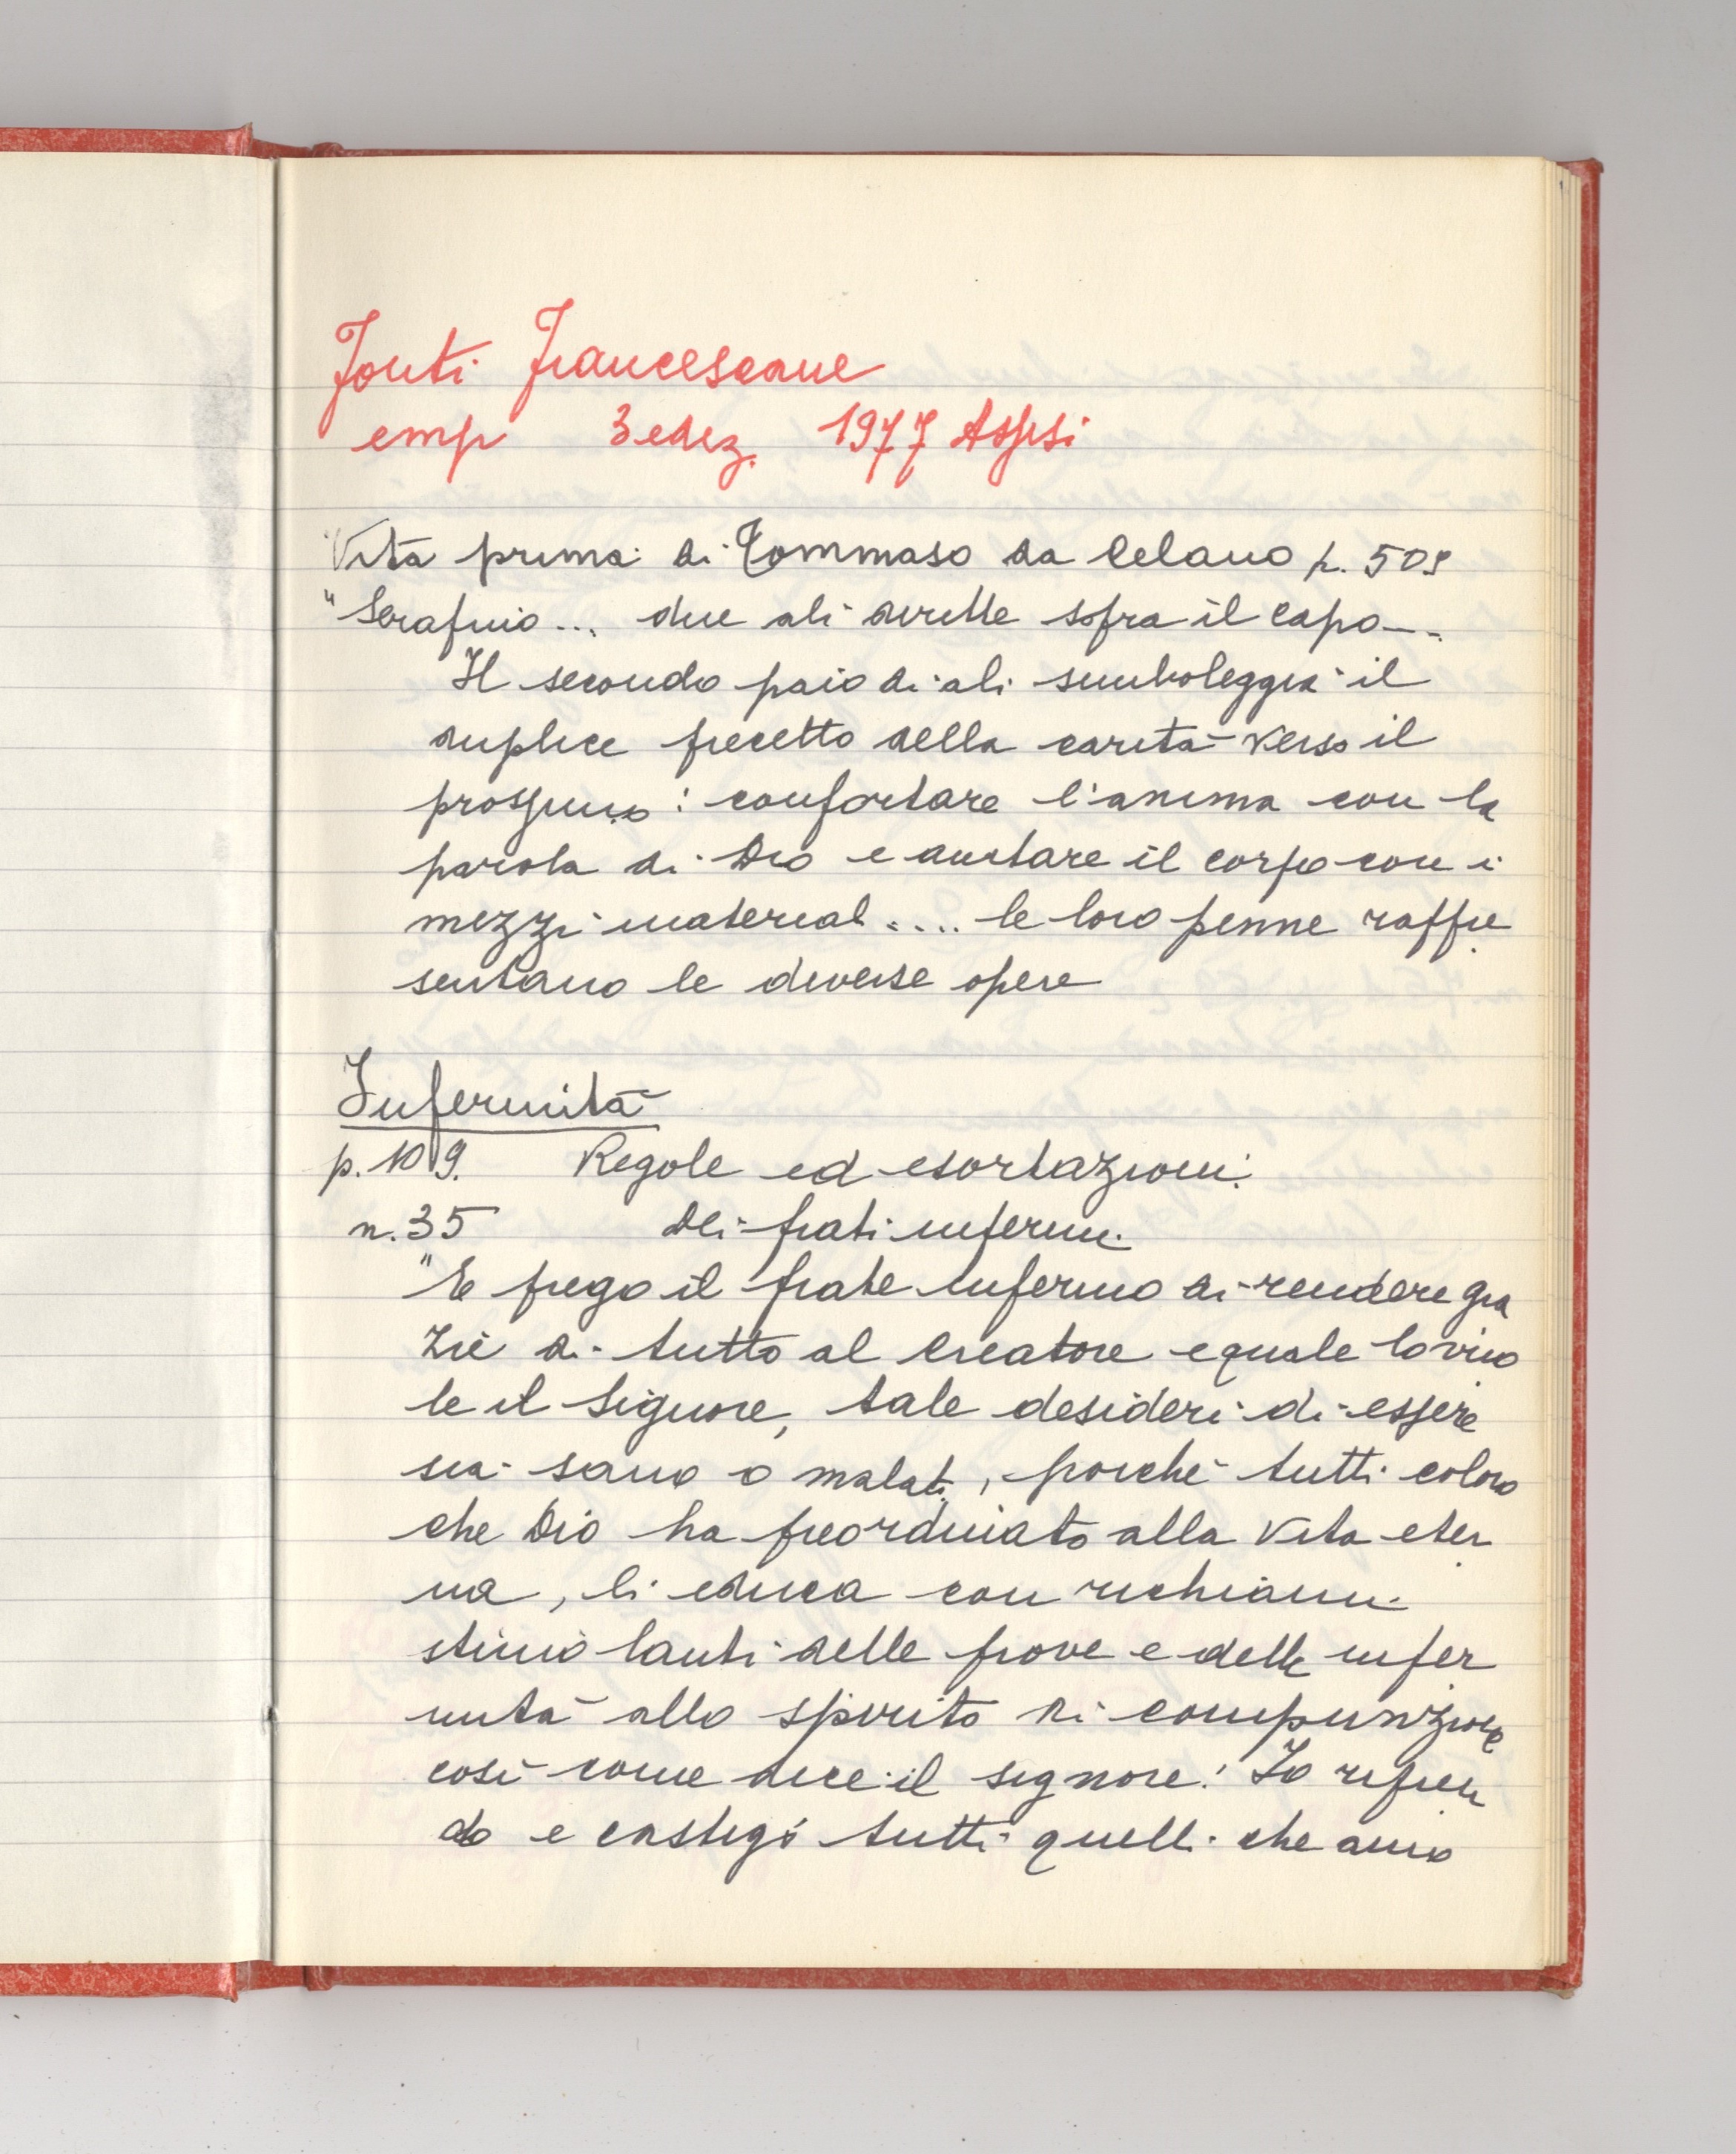 Fonti Francescane
emp 3 ediz. 1977 Assisi
Vita prima di Tommaso da Celano p. 509
"Serafino... due ali dirette sopra il capo...
Il secondo paio di ali simboleggia il
duplice precetto della carità verso il
prossimo: confortare l'anima con la
parola di Dio e aiutare il corpo con i
mezzi materiali .... le loro penne rappre
sentano le diverse opere
Infermità
p. 109. Regole ed esortazioni.
n. 35 Dei frati infermi.
"E prego il frate infermo di rendere gra
zie di tutto al Creatore e quale lo vuo
le il Signore, tale desideri di essere
sia sano o malato, poiché tutti coloro
che Dio ha preordinato alla vita eter
na, li educa con richiami
stimolanti delle prove e delle infer
mità allo spirito di compunzione
così come dice il signore: Io ripren
do e castigo tutti quelli che amo